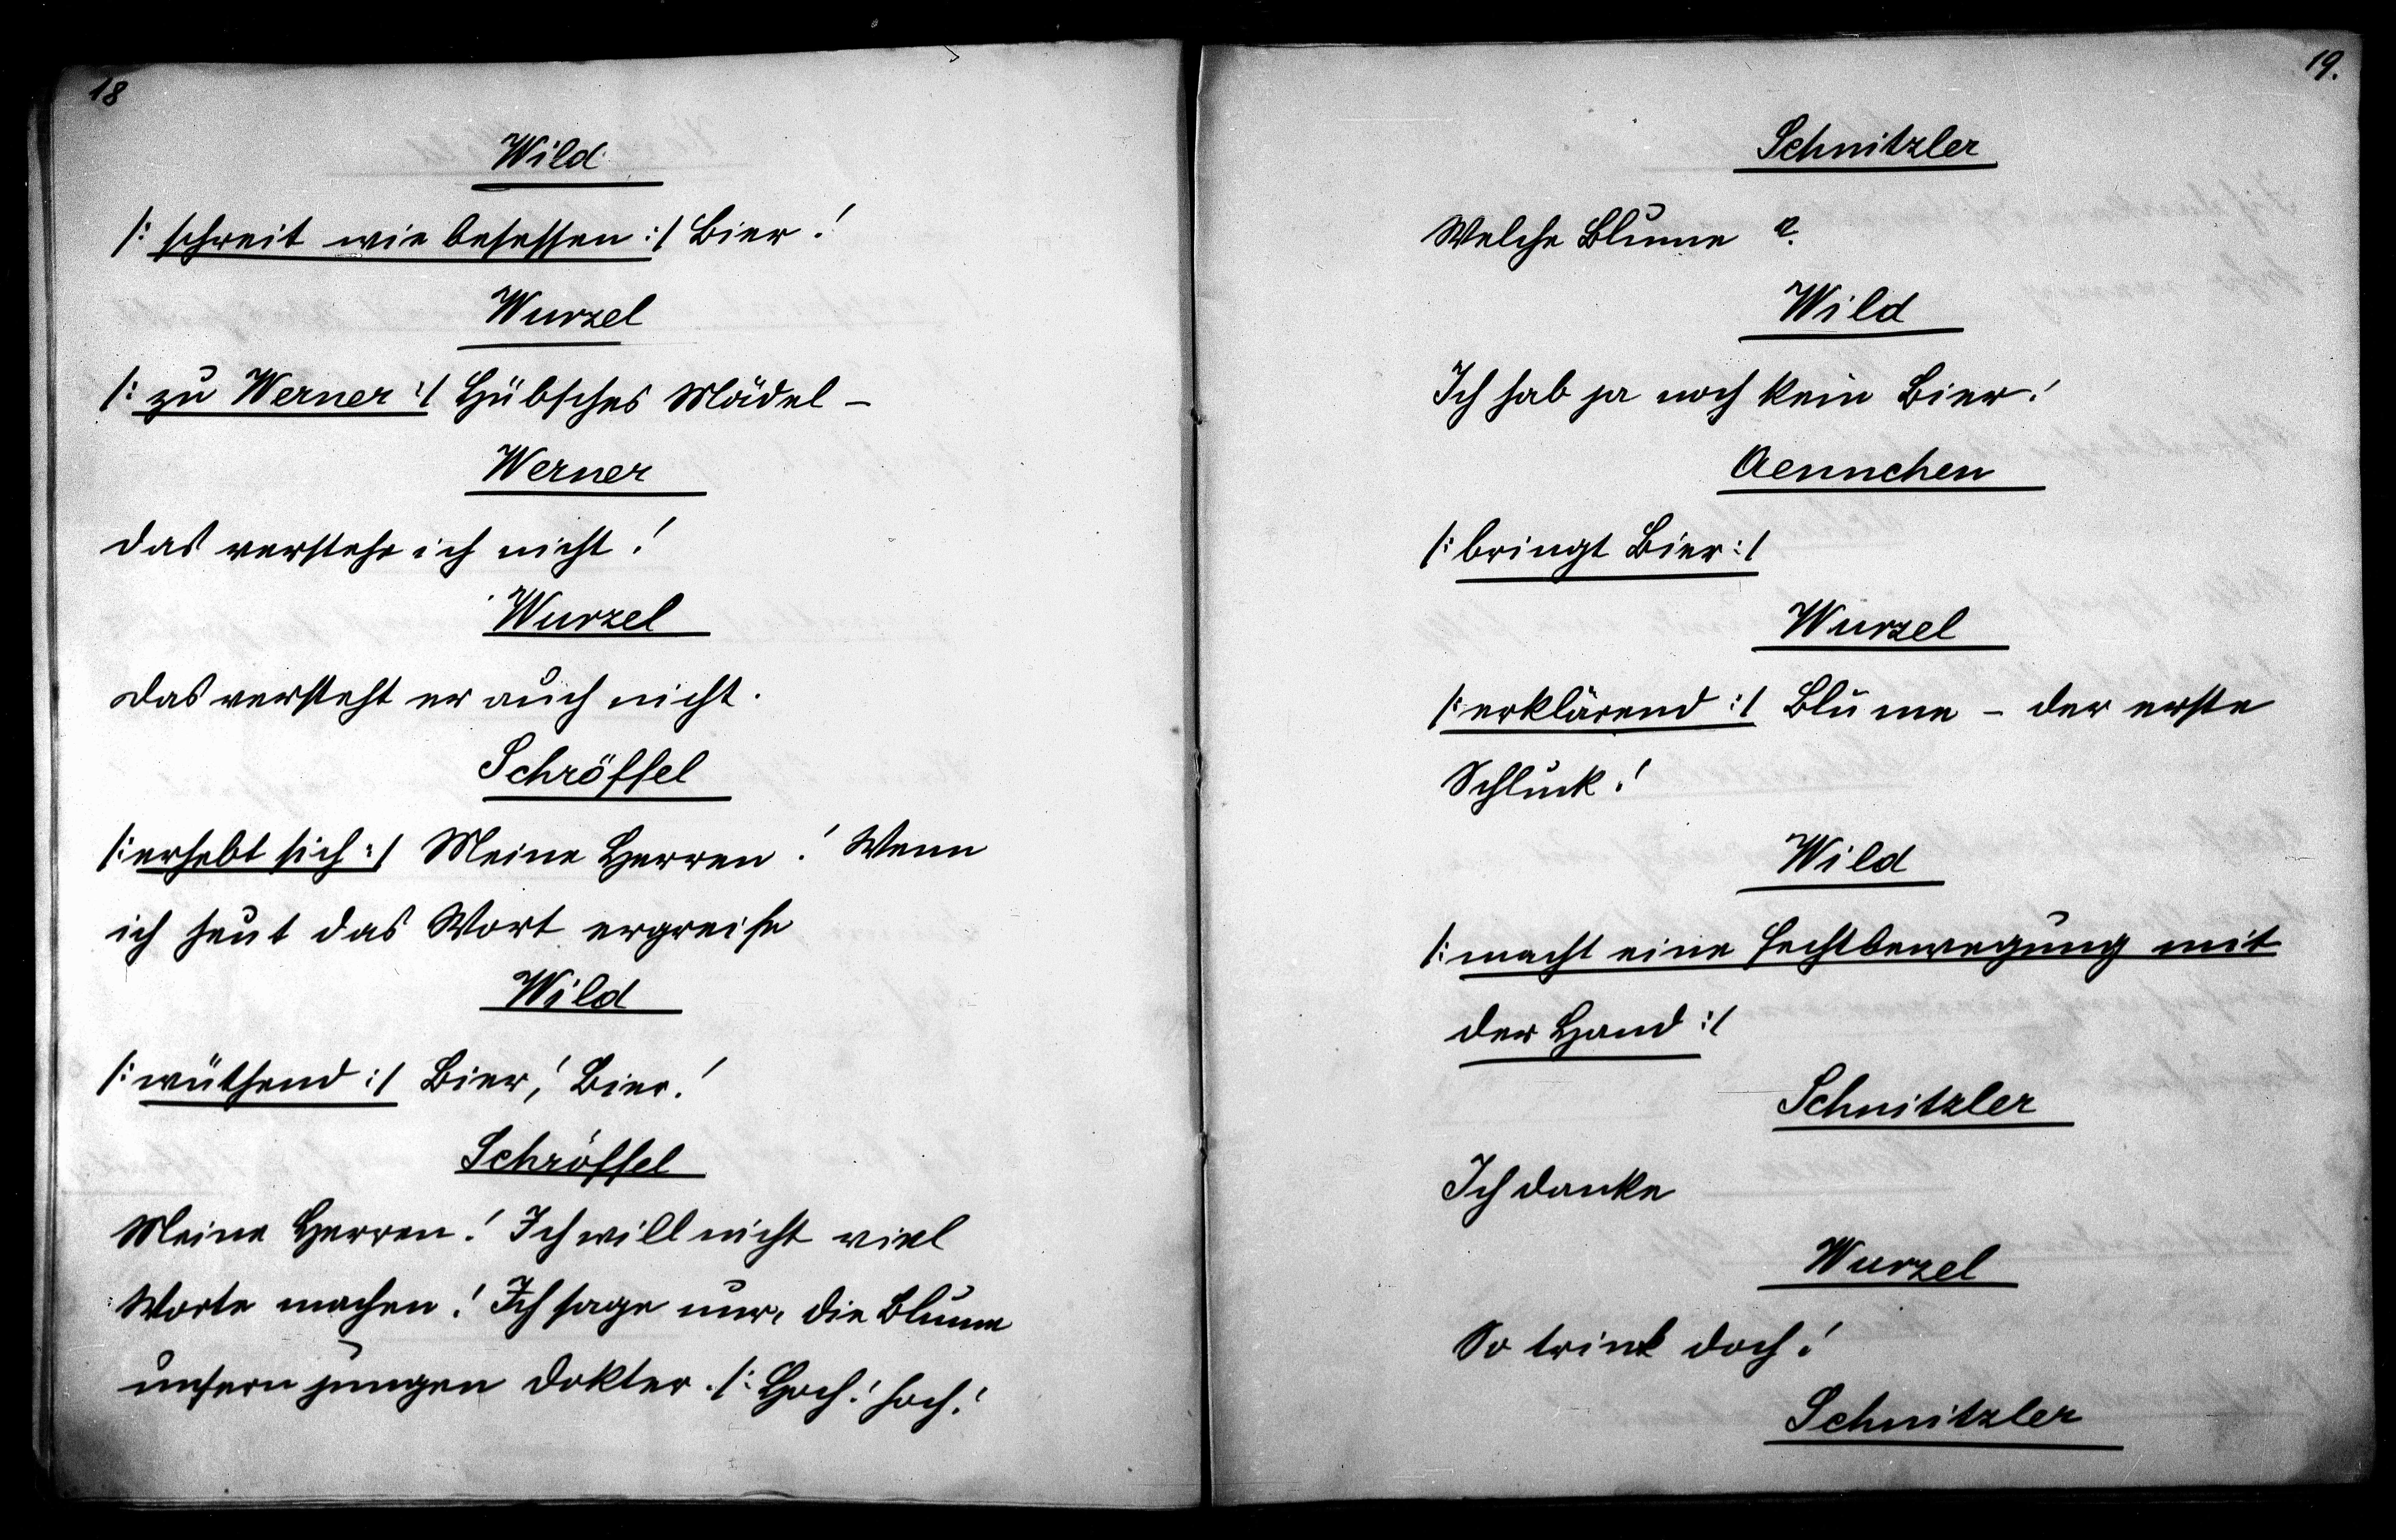 18
Wild
/: schreit wie besessen :/ Bier!
Wurzel
/: zu Werner :/ Hübsches Mädel –
Werner
Das verstehe ich nicht!
Wurzel
Das versteht er auch nicht.
Schröffel
/: erhebt sich :/ Meine Herren! Wenn
ich heut das Wort ergreife
Wild
/: wüthend :/ Bier! Bier!
Schröffel
Meine Herren! Ich will nicht viel
Worte machen! Ich sage nur, die Blume
unsern jungen Dokter. /: Hoch! hoch!
19.
Schnitzler
Welche Blume ?
Wild
Ich hab ja noch kein Bier!
Aennchen
/: bringt Bier :/
Wurzel
/: erklärend :/ Blume – der erste
Schluck!
Wild
/: macht eine Fechtbewegung mit
der Hand :/
Schnitzler
Ich danke
Wurzel
So trink doch!
Schnitzler